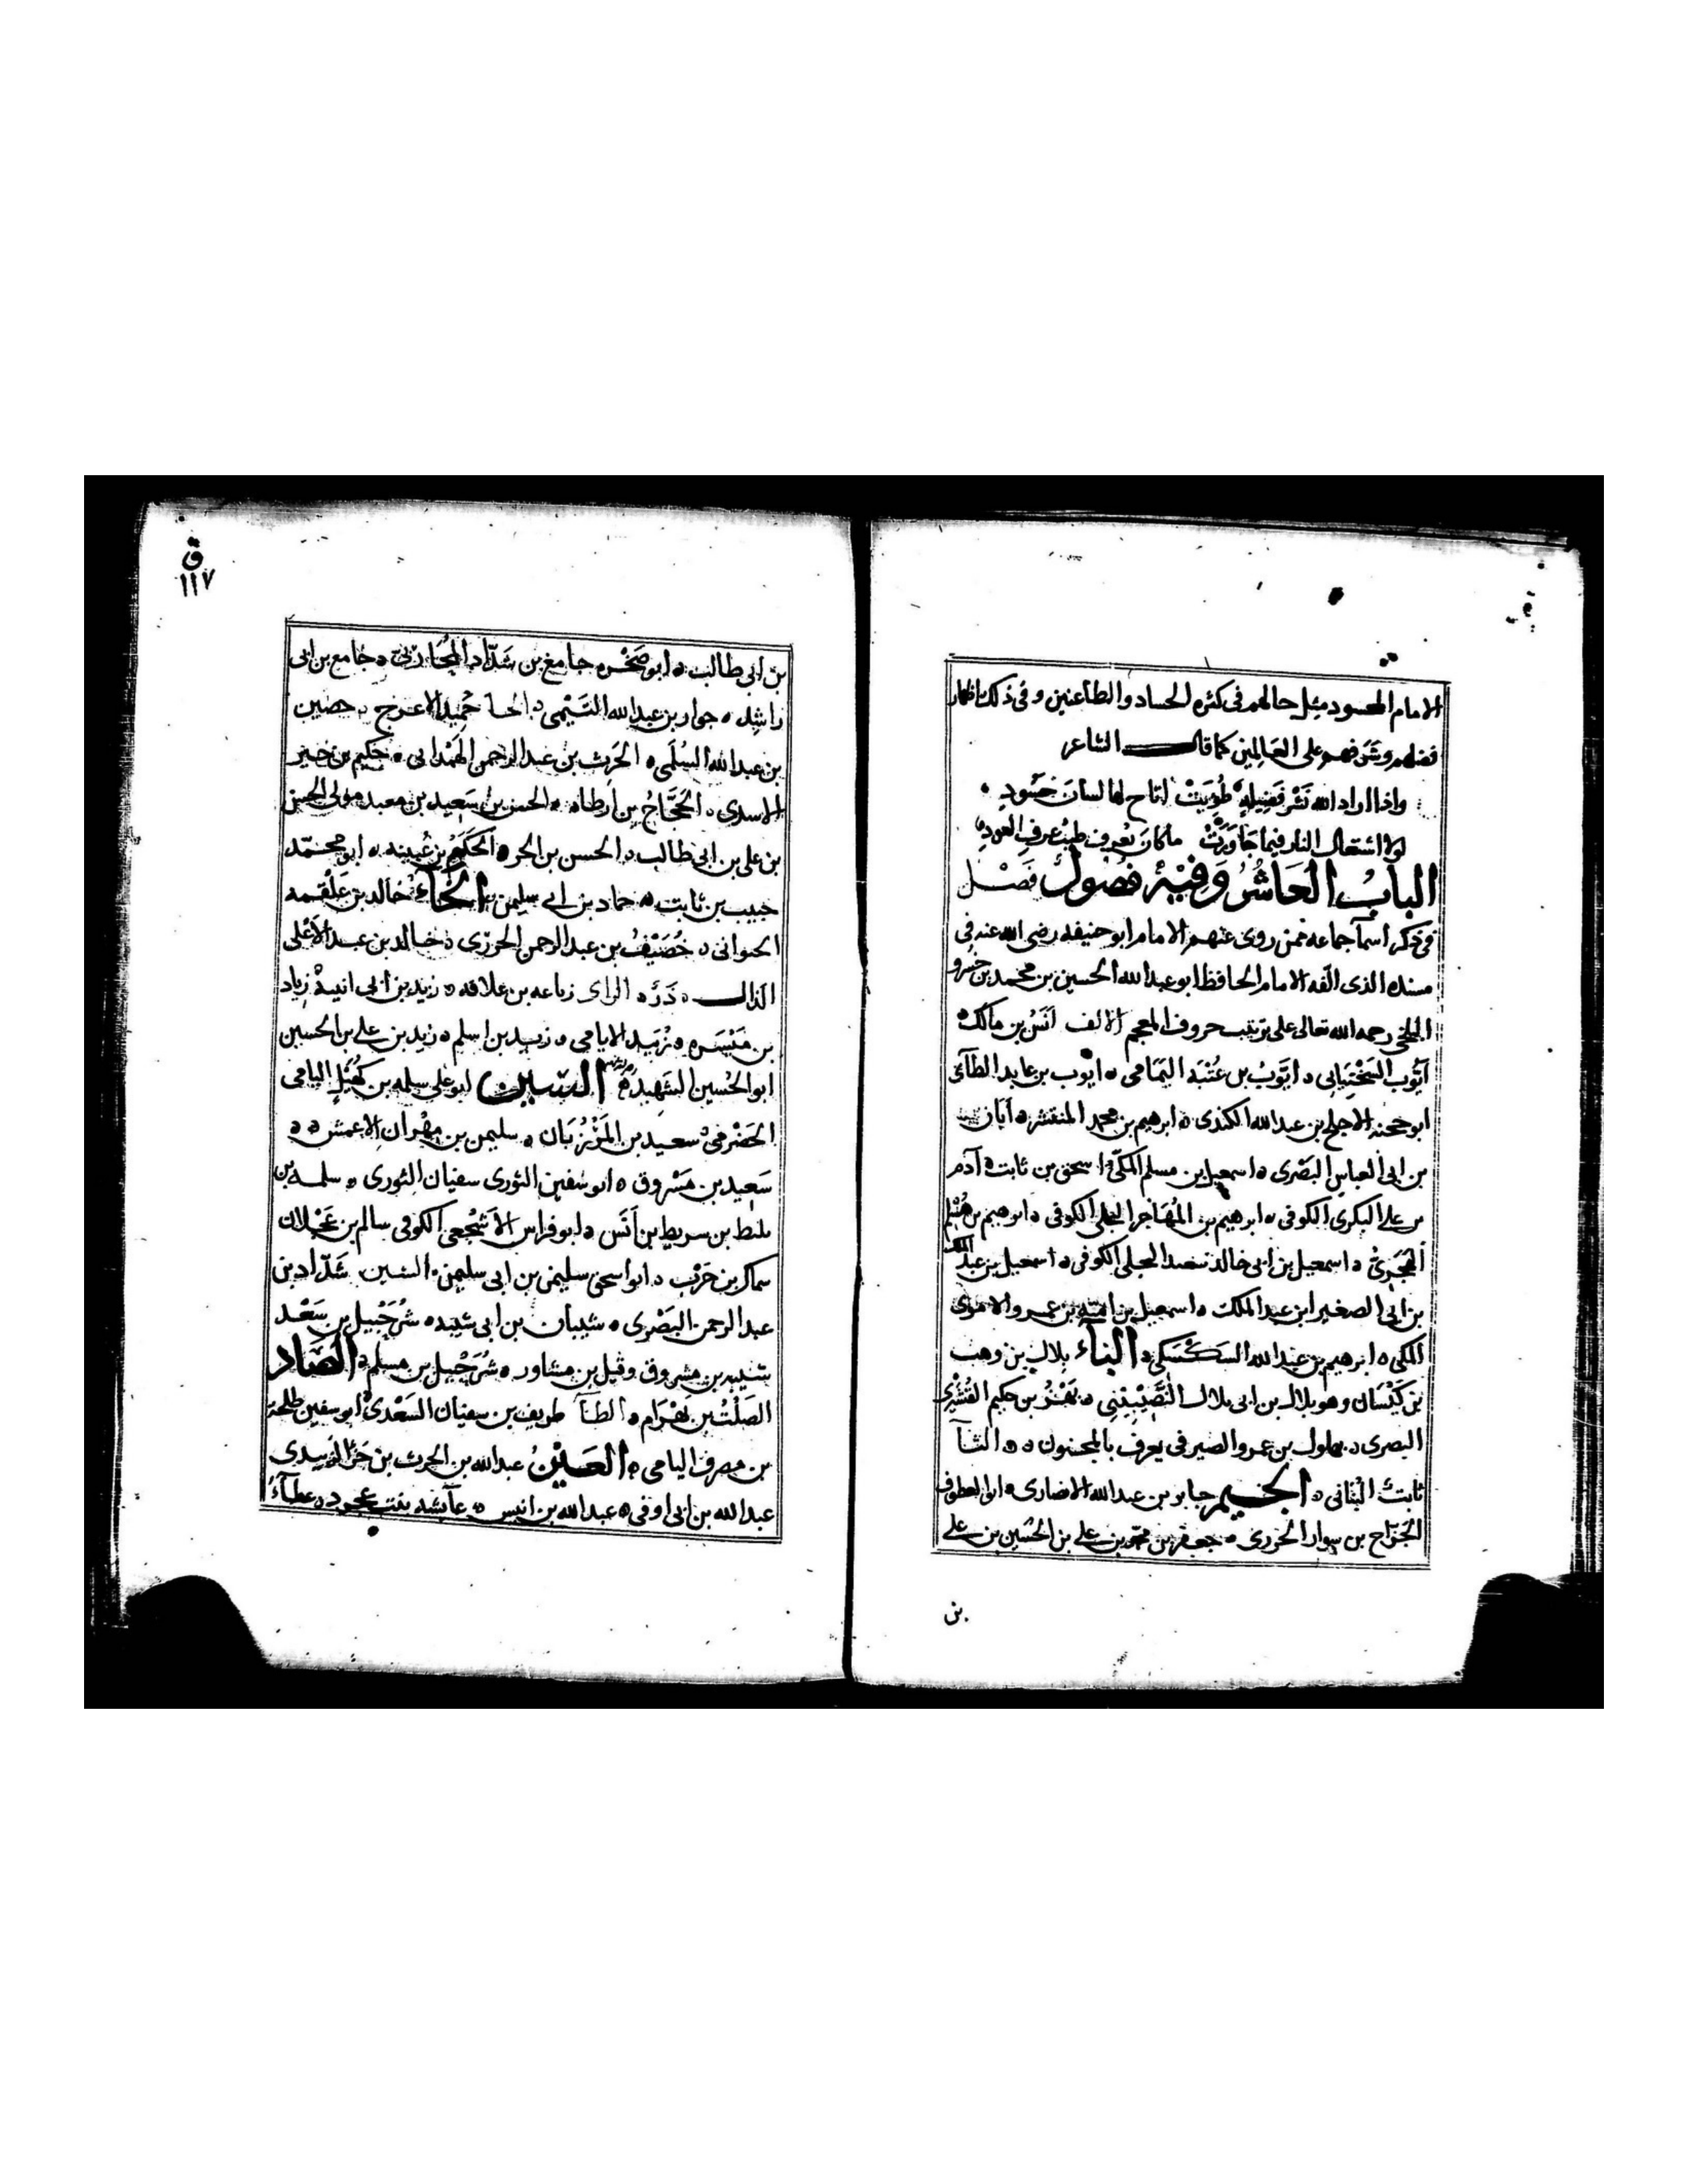 الامام المحسود مثل حالهم فى كثره الحساد والطاعنين وفى ذلك اظهار
فضلهم وشرفهم على العالمين كما قال الشاعر
واذا اراد الله نشر فضيلة طويت اتاح لها لسان حسود
لولا اشتعال النار فيما جاورت ما كان يعرف طيب عرف العود
الباب العاشر وفيه فصول فصل
فى ذكر اسمآ جماعه ممن روى عنهم الامام ابو حنيفه رضى الله عنه فى
مسنده الذى الفه الامام الحافظ ابو عبد الله الحسين بن محمد بن خسرو
البلخى رحمه الله تعالى على ترتيب حروف المعجم الالف انس بن مالك
ايوب السختيانى ايوب بن عتبه اليمامى ايوب بن عايد الطآئى
ابو حجنه الاجلح بن عبد الله الكندى ابرهيم بن محمد المنتشر أبان
بن ابى العباس البصرى اسمعيل بن مسلم المكى اسحق بن ثابت آدم
بن على البكرى الكوفى ابرهيم بن المهاجر البجلى الكوفى ابرهيم بن مسلم
الهجرى اسمعيل بن ابى خالد سعد البجلى الكوفى اسمعيل بن عبد الملك
بن ابى الصغير ابن عبد الملك اسمعيل بن اميه بن عمرو الاموى
المكى ابرهيم بن عبد الله السكسكى البآء بلال بن وهب
بن كيسان وهو بلال بن ابى بلال النصيبينى بهز بن حكيم القشيرى
البصرى بهلول بن عمرو الصيرفى يعرف بالمجنون الثآ
ثابت البنانى الجيم جابر بن عبد الله الانصارى ابو العطوف
الجراح بن سوار الجزرى جعفر بن محمد بن على بن الحسين بن على
بن
ق
١١٧
بن ابى طالب ابو صخره جامع بن شداد المحاربى جامع بن ابى
راشد جواد بن عبد الله التيمى الحا حميد الاعرج حصين
بن عبد الله السلمى الحرث بن عبد الرحمن الهمدانى حكيم بن جبير
الاسدى الحجاج بن ارطاه الحسن بن سعيد بن معبد مولى الحسن
بن على بن ابى طالب الحسن بن الحر الحكم بن عيينه ابو محمد
حبيب بن ثابت حماد بن ابى سليمن الخآء خالد بن علقمه
الحنوانى خصيف بن عبد الرحمن الجزرى خالد بن عبد الاعلى
الذال ذر الراى زياعه بن علاقه زيد بن ابى انيسة زياد
بن ميسره زبيد الايامى زيد بن اسلم زيد بن على بن الحسين
ابو الحسين الشهيد السين ابو على سلمه بن كهيل اليامى
الحضرمى سعيد بن المرزبان سليمن بن مهران الاعمش
سعيد بن مسروق ابو سفين الثورى سفيان الثورى سلمه بن
بن سريط بن انس ابو فراس الاشجعى الكوفى سالم بن عجلان
سماك بن حرب ابو اسحق سليمن بن ابى سليمن الشين شداد بن
عبد الرحمن البصرى شيبان بن ابى شيبه شرحبيل بن سعد
شيبه بن مسروق وقيل بن مشاور شرحبيل بن مسلم الصاد
الصلت بن بهرام الطآ طريف بن سفيان السعدى ابو سفين طلحة
بن مصرف اليامى العين عبد الله بن الحرث بن جزا الزبيدى
عبد الله بن ابى اوفى عبد الله بن انيس عآئشه بنت عجرد عطآء